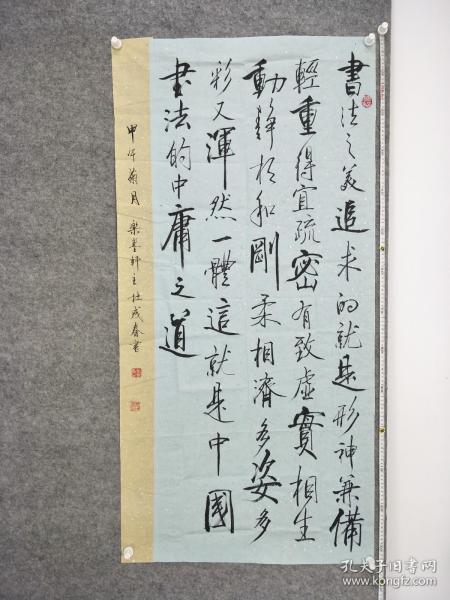 書法之美追求的就是形神兼備
輕重得宜疏密有致虛實相生
動靜相和剛柔相濟多姿多
彩又渾然一體這就是中國
書法的中庸之道
甲午菊月 樂墨軒主杜成春書
孔夫子旧书网